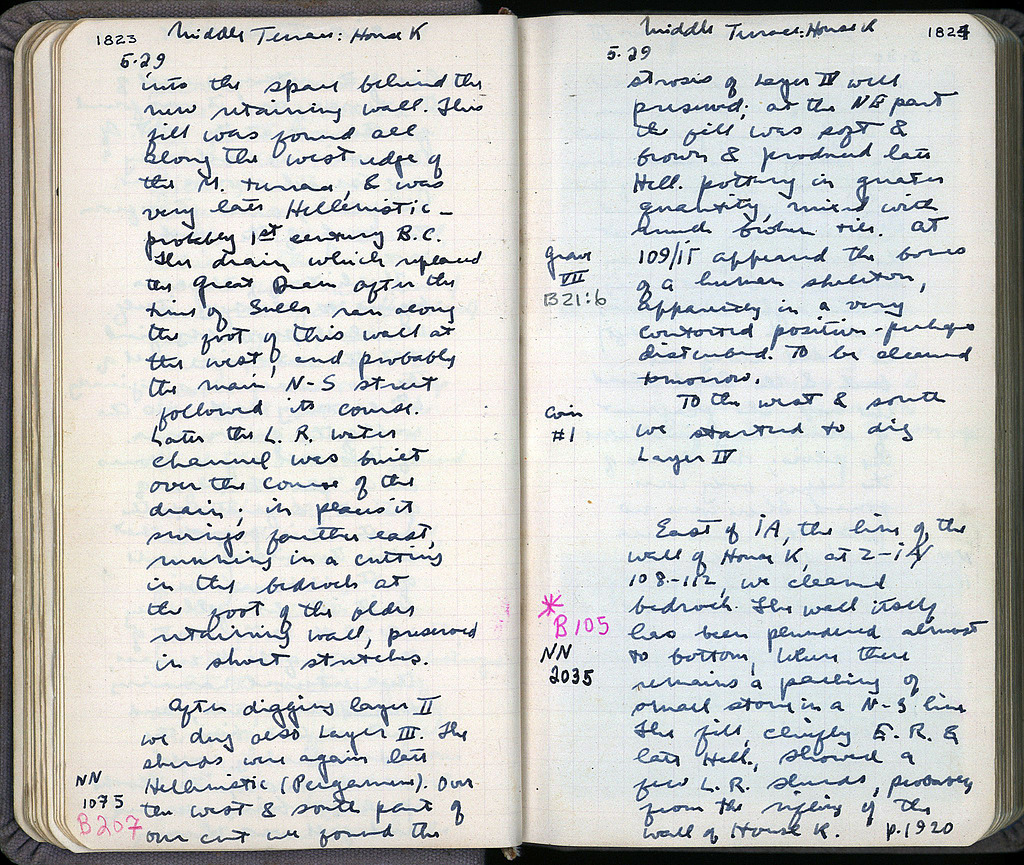 1823 Middle Terrace: House K
5.29
into the space behind the
new retaining wall. This
fill was found all
along the west edge of
the M. terrace, & was
very late Hellenistic –
probably 1st century B.C.
The drain which replaced
the Great Drain after the
time of Sulla ran along
the foot of this wall at
the west, and probably
the main N-S street
followed its course.
Later the L. R. water
channel was built
over the course of the
drain; in places it
swings farther east,
running in a cutting
in the bedrock at
the foot of the older
retaining wall, preserved
in short stretches.
After digging layer II
we dug also Layer III. The
sherds were again late
Hellenistic (Pergamene). Over
the west & south part of
our cut we found the
NN
1075
B207
Middle Terrace: House K 1824
5.29
strosis of Layer IV well
preserved; at the NE part
the fill was soft &
brown & produced late
Hell. pottery in greater
quantity, mixed with
much broken tile. At
109/ΙΓ appeared the bones
of a human skeleton,
apparently in a very
contorted position - perhaps
disturbed. To be cleaned
tomorrow.
Grave
VII
B21:6
To the west & south
we started to dig
Layer IV
Coin
#1
East of ΙΑ, the line of the
wall of House K, at
108-112, we cleaned
bedrock. The wall itself
has been plundered almost
to bottom, where there
remains a packing of
small stones in a N-S line
The fill, chiefly E. R. &
late Hell., showed a
few L. R. sherds, probably
from the rifling of the
wall of House K. p.1920
*
B105
NN
2035